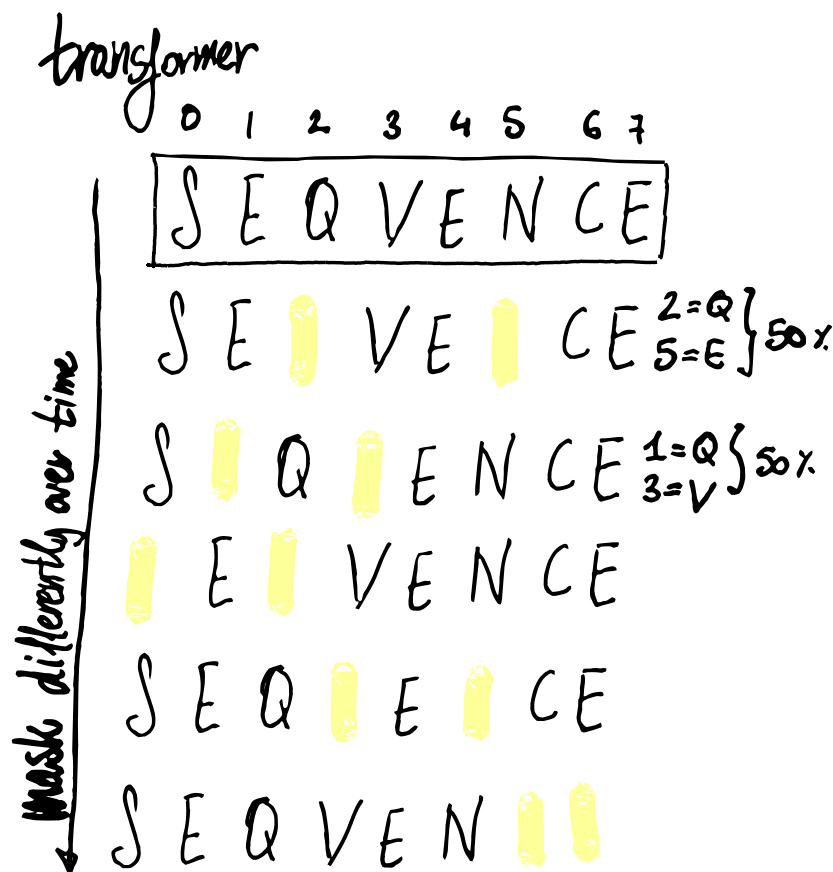 transformer
0 1 2 3 4 5 6 7
S E Q V E N C E
S E V E C E 2=Q } 50%
5=E
S Q E N C E 1=Q } 50%
3=V
E V E N C E
S E Q E C E
S E Q V E N
mask differently over time